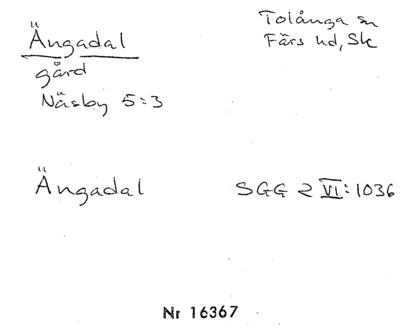 Ängadal
Tolånga sn
Färs hd, Sk
gård
Näsby 5:3
Ängadal
SGG 2 VI:1036
Nr 16367